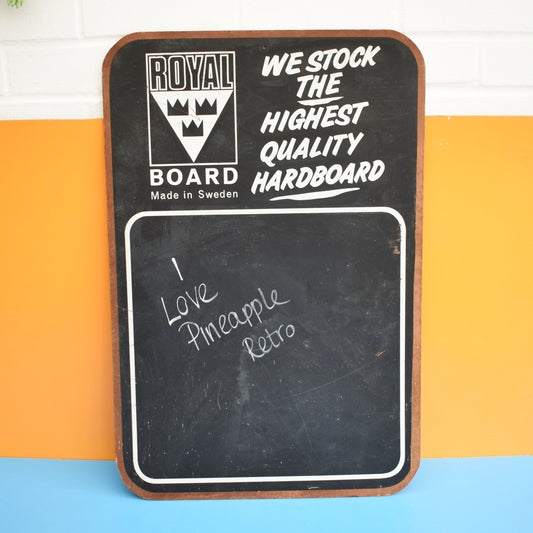 ROYAL
BOARD
Made in Sweden
WE STOCK
THE
HIGHEST
QUALITY
HARDBOARD
I
Love
Pineapple
Retro